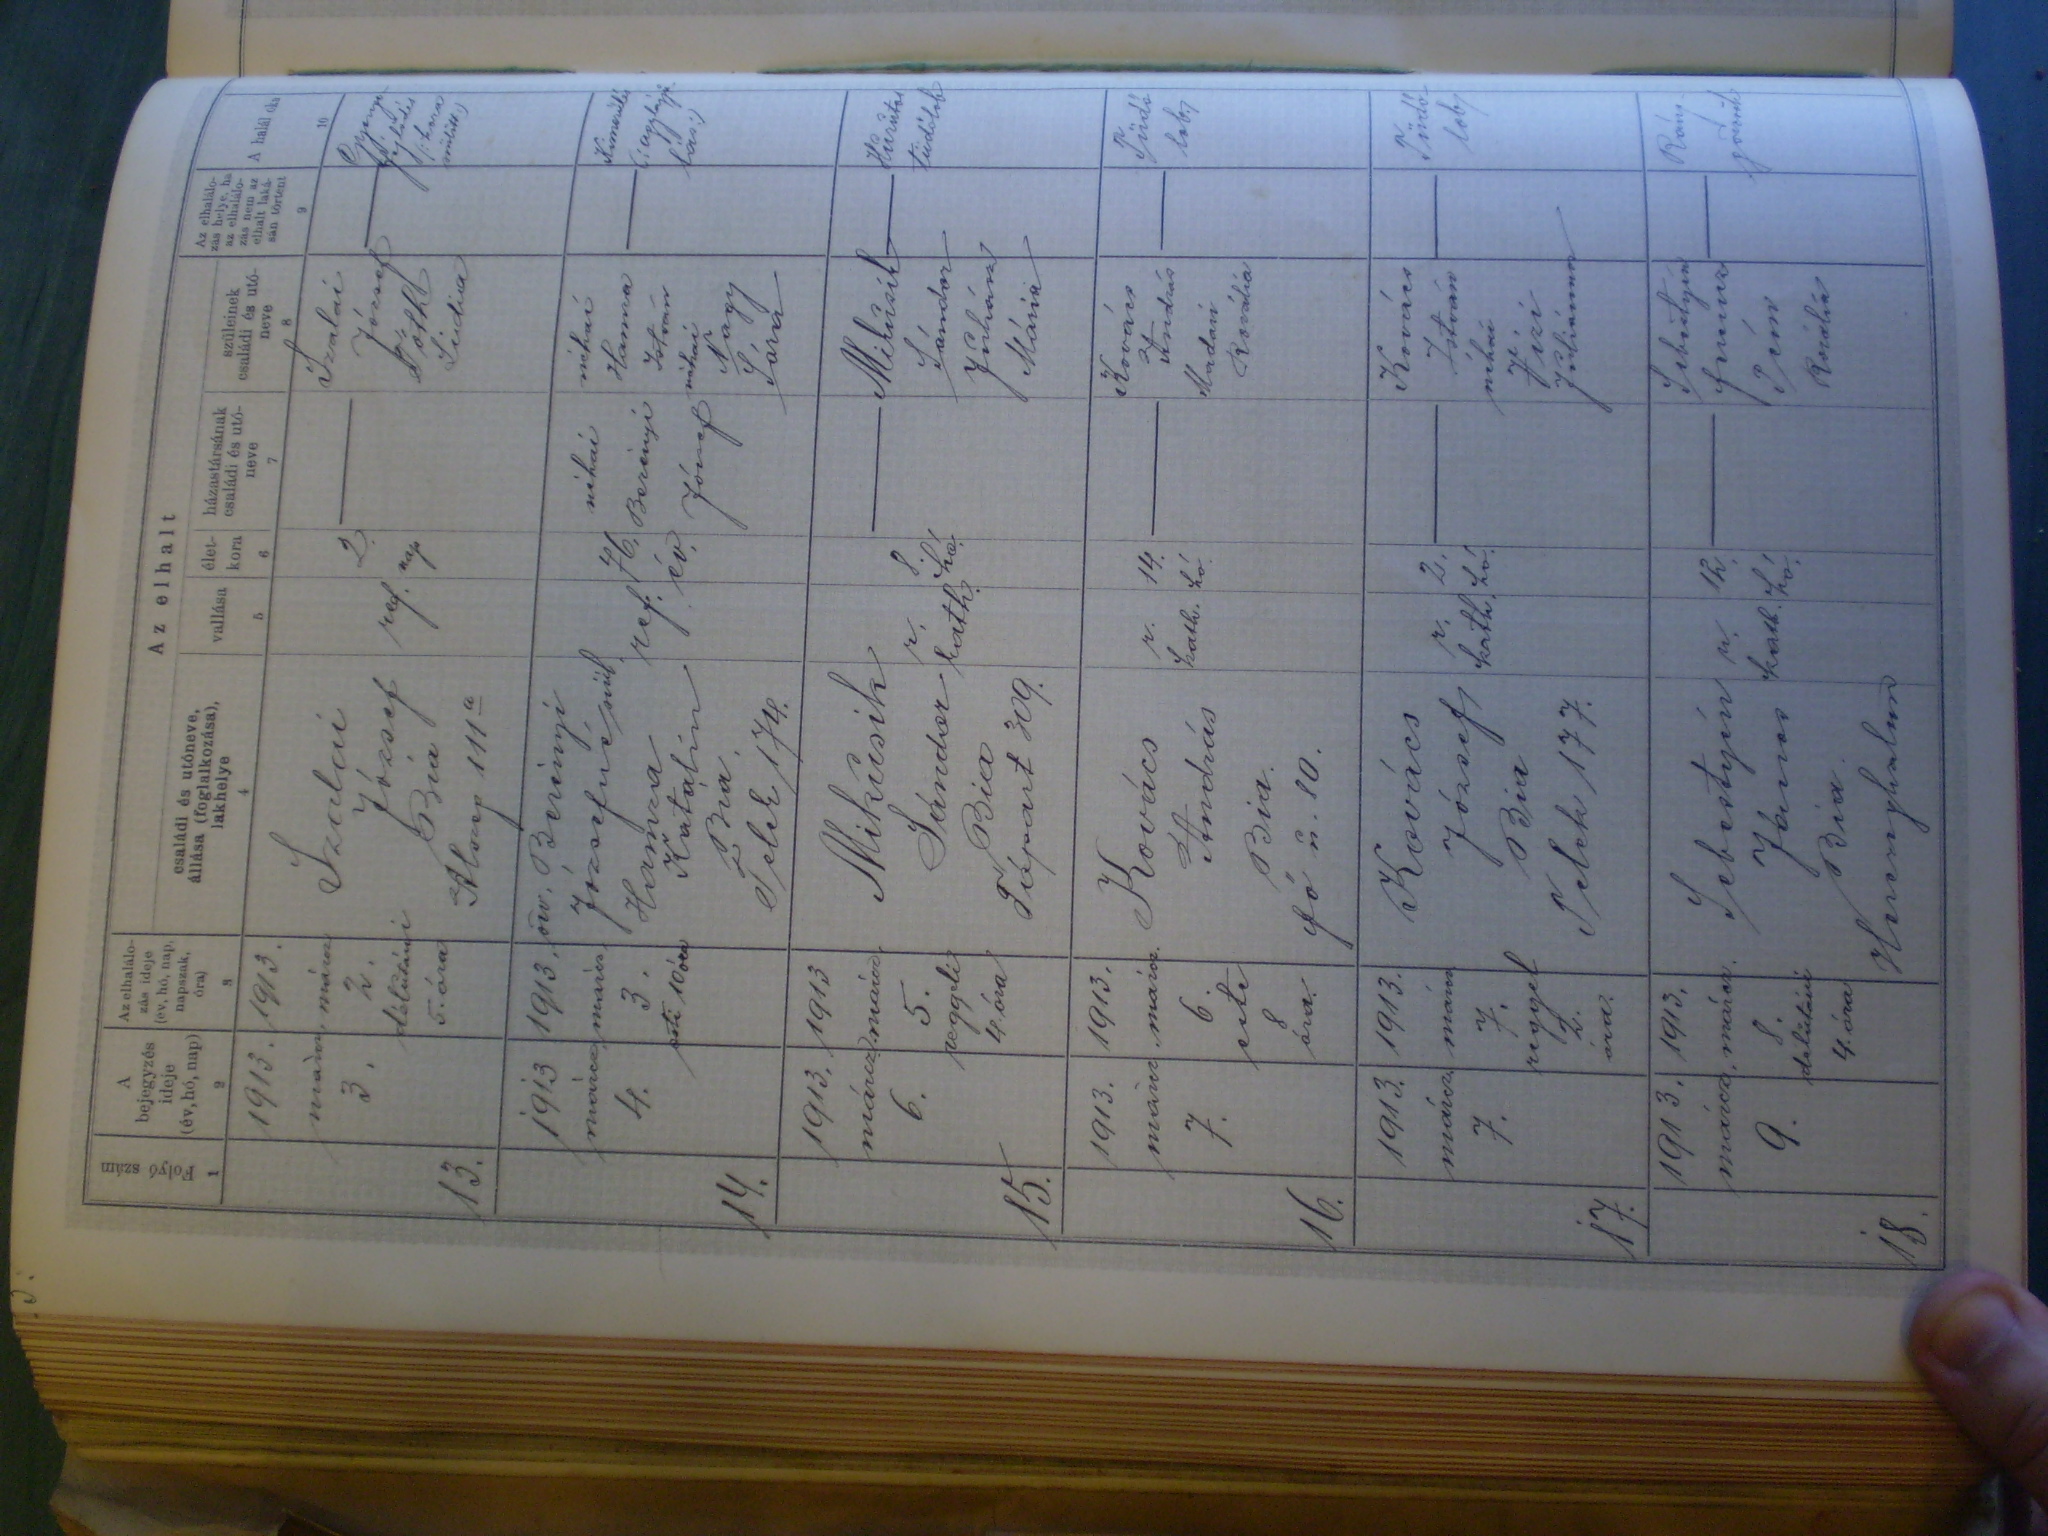 Az elhalt
Folyó szám
A bejegyzés ideje (év, hó, nap)
Az elhalálozás ideje (év, hó, nap, napszak, óra)
családi és utóneve, állása (foglalkozása), lakhelye
vallása
életkora
házastársának családi és utóneve
szüleinek családi és utóneve
Az elhalálozás helye, ha az elhalálozás nem az elhalt lakásán történt
A halál oka
1 2 3 4 5 6 7 8 9 10
13.
1913.
márcz.
3.
1913.
márcz.
2.
délutáni
5. óra
Szalai
József
Bia
Alszeg 111a
ref.
2.
nap
Szalai
József
Tóth
Lidia
14.
1913
márcz.
4.
1913.
márcz.
3.
esti 10 óra
özv. Berényi
Józsefné szül.
Hanza
Katalin
Bia.
Telek 174.
ref.
76.
év.
néhai
Berényi
József
néhai
István
néhai
Nagy
Sára
15.
1913.
márcz.
6.
1913
márcz.
5.
reggeli
4. óra
Mikusik
Sándor
Bia
309.
r.
kath.
8.
hó.
Mikusik
Sándor
Juhász
Mária
Hurutos
tüdőlob
16.
1913.
márcz.
7.
1913.
márcz.
6.
esti
8
óra.
Kovács
András
Bia.
Fő u. 10.
r.
kath.
14.
hó.
Kovács
András
Madari
Rozália
Tüdő
lob
17.
1913.
márcz.
7.
1913.
márcz.
7.
reggel
2.
óra.
Kovács
József
Bia
Telek 177.
r.
kath.
2.
hó.
Kovács
István
néhai
Vizi
Julianna
Tüdő
lob
18.
1913.
márcz.
9.
1913.
márcz.
8.
délutáni
4. óra
Sebestyén
János
Bia.
r.
kath.
12.
hó.
Sebestyén
Ferencz
Rozália
Ráng
görcsök